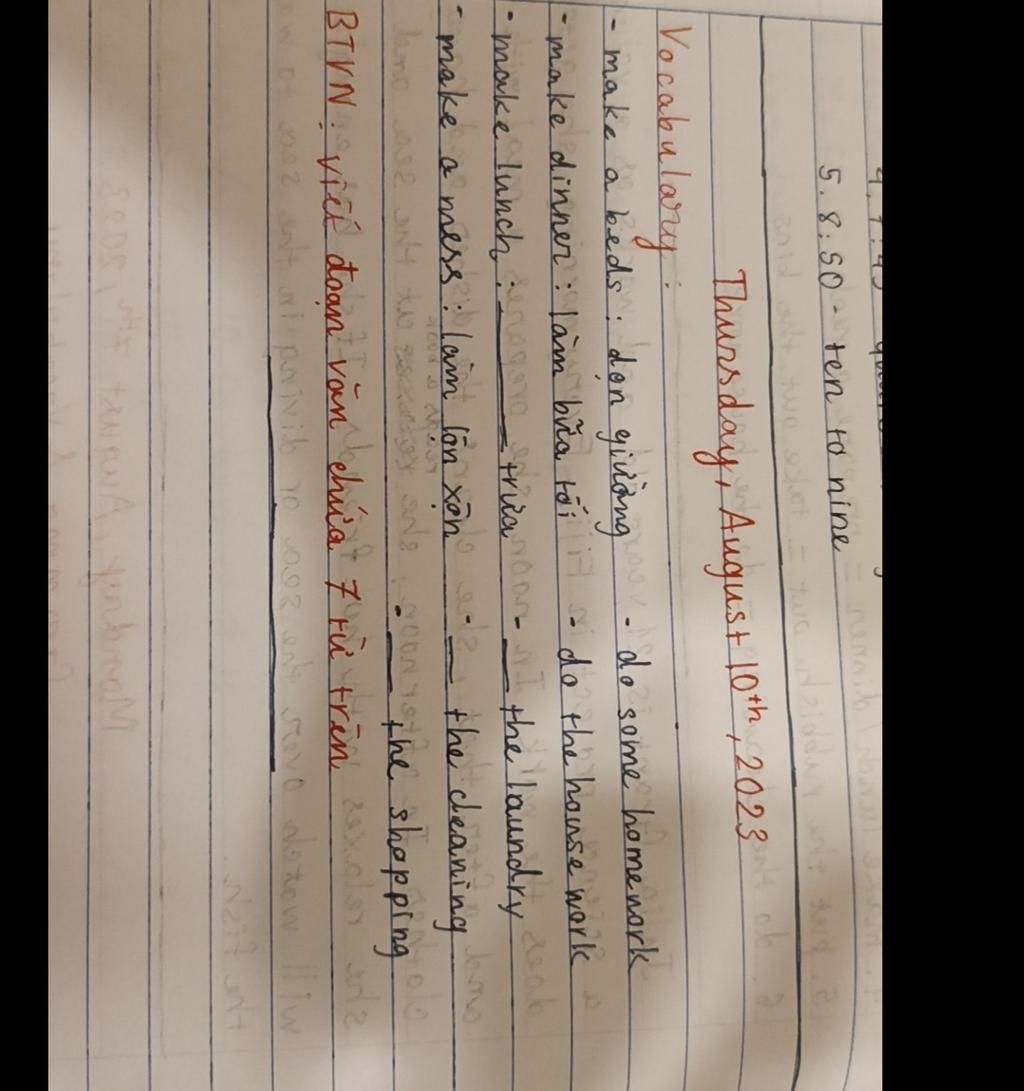 5. 8:50 - ten to nine
Thursday, August 10th, 2023
Vocabulary:
- make a beds: dọn giường - do some homework
- make dinner: làm bữa tối - do the housework
- make lunch: ______ trưa - __ the laundry
- make a mess: làm lộn xộn - __ the cleaning
- __ the shopping
BTVN: viết đoạn văn chứa 7 từ trên